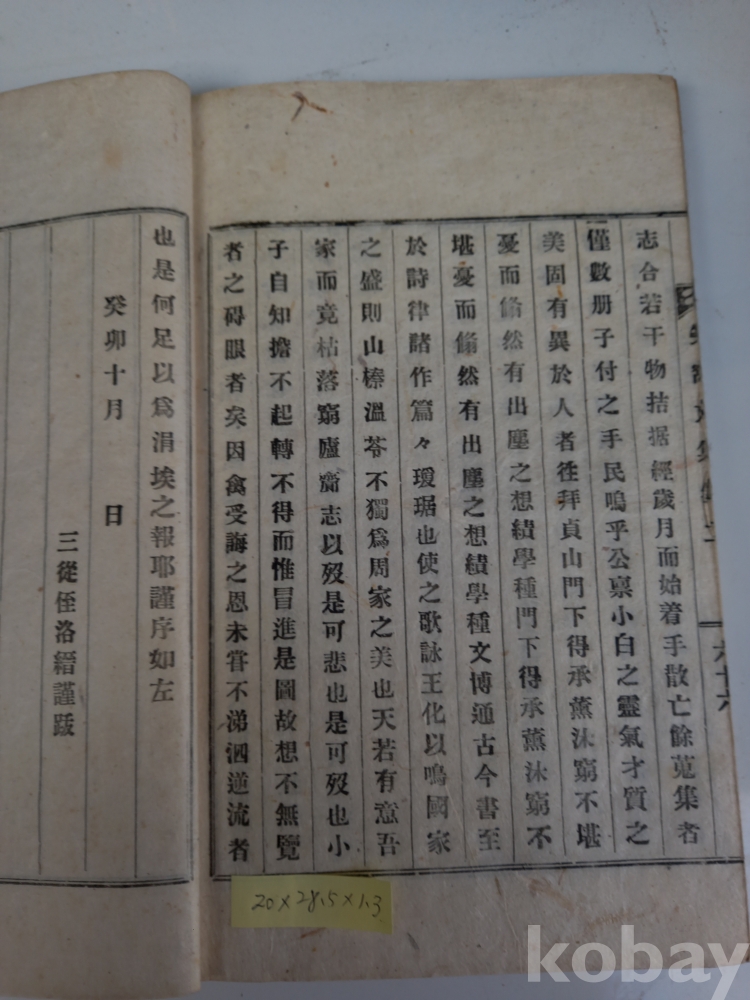 志合若干物拮据經歲月而始着手散亡餘蒐集者
僅數册子付之手民嗚乎公禀小白之靈氣才質之
美固有異於人者徃拜貞山門下得承薰沐窮不堪
憂而翛然有出塵之想績學種門下得承薰沐窮不
堪憂而翛然有出塵之想績學種文博通古今書至
於詩律諸作篇々瑗琚也使之歌詠王化以鳴國家
之盛則山榛溫苓不獨爲周家之美也天若有意吾
家而竟枯落窮廬齎志以歿是可悲也是可歿也小
子自知擔不起轉不得而惟冒進是圖故想不無覽
者之碍眼者矣因禽受誨之恩未甞不涕泗逆流者
也是何足以爲涓埃之報耶謹序如左
癸卯十月 日
三從侄洛縉謹跋
六十六
20×28.5×1.3
kobay